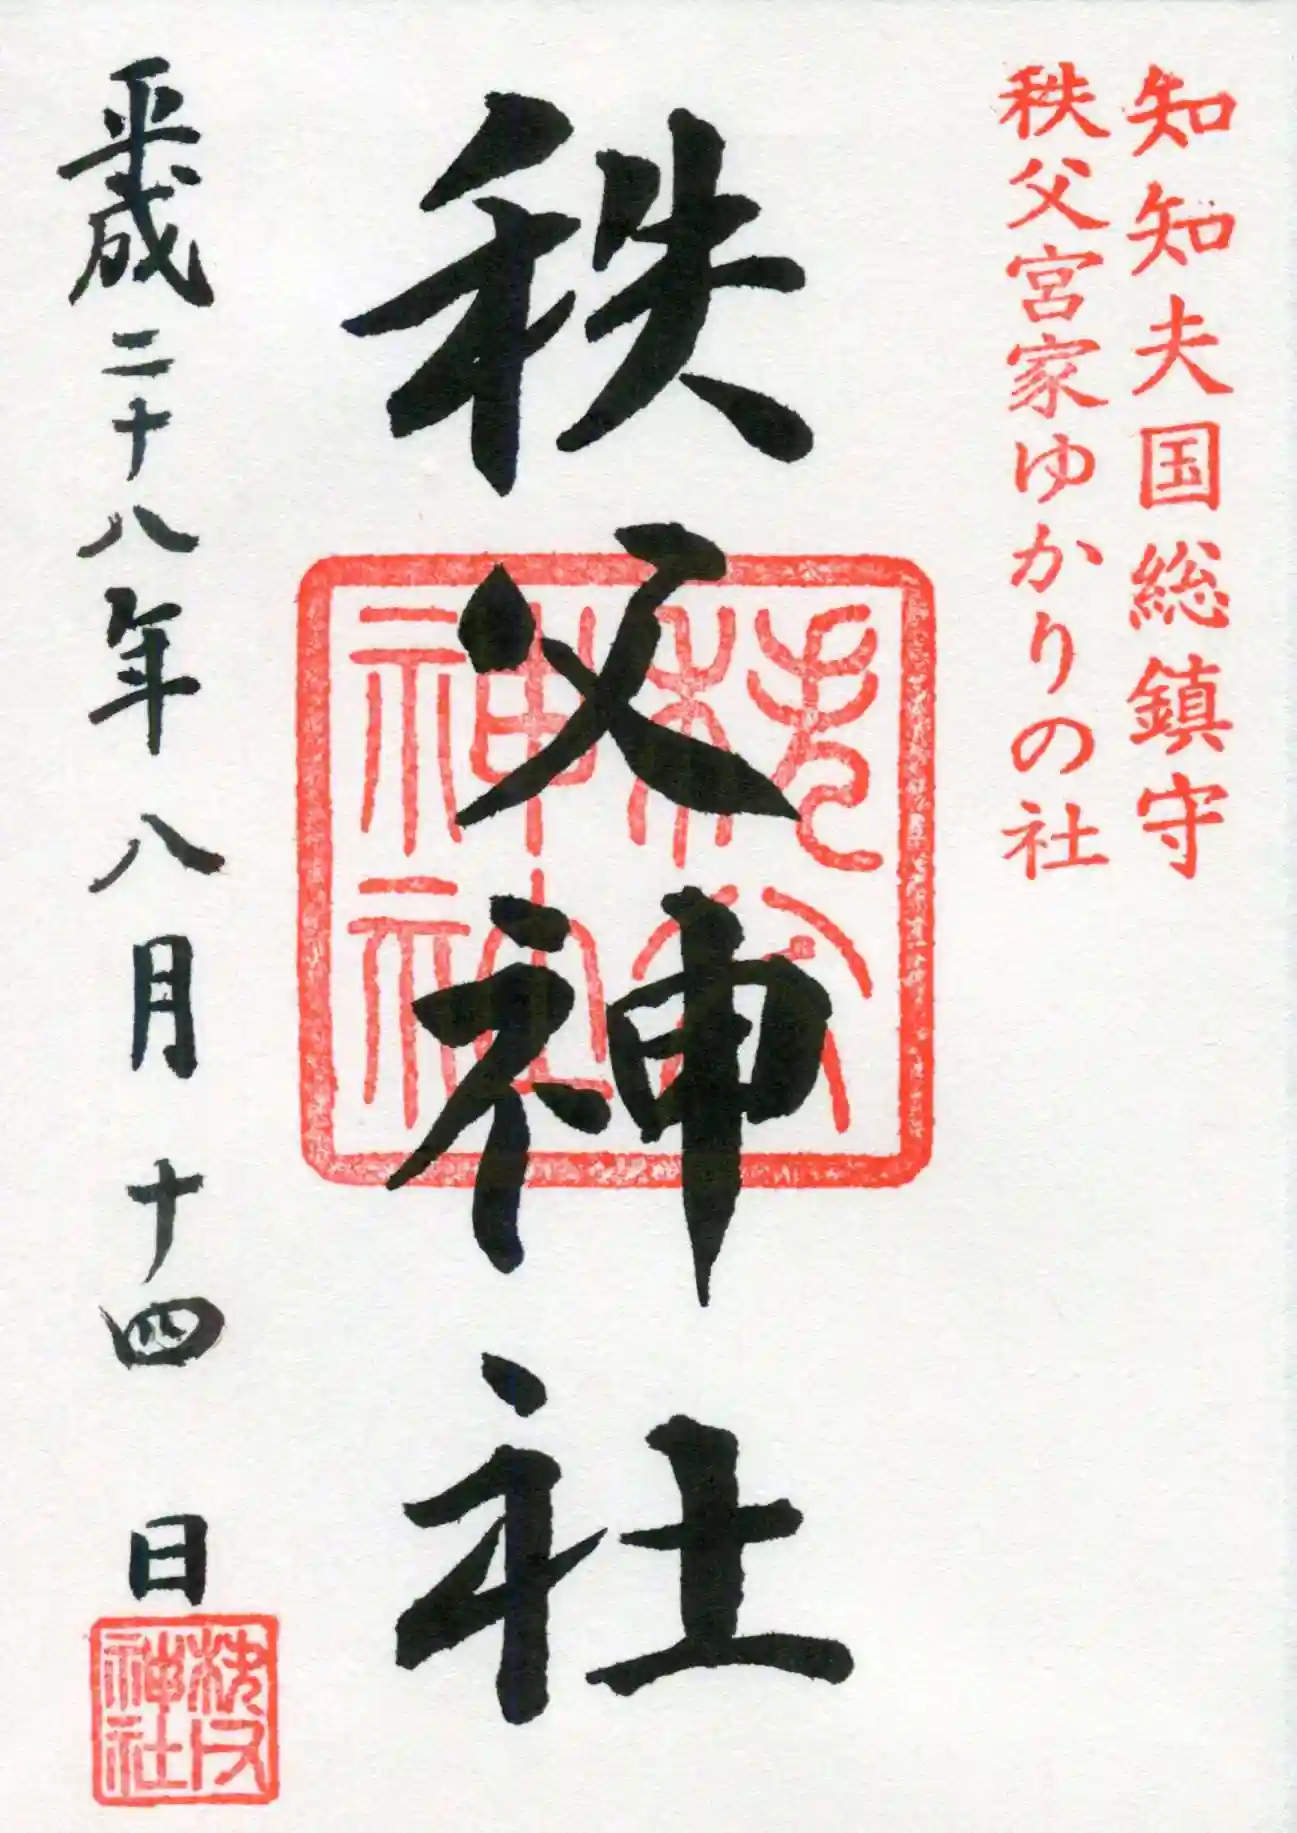 知知夫国総鎮守
秩父宮家ゆかりの社
秩父神社
秩父神社
平成二十八年八月十四日
秩父神社